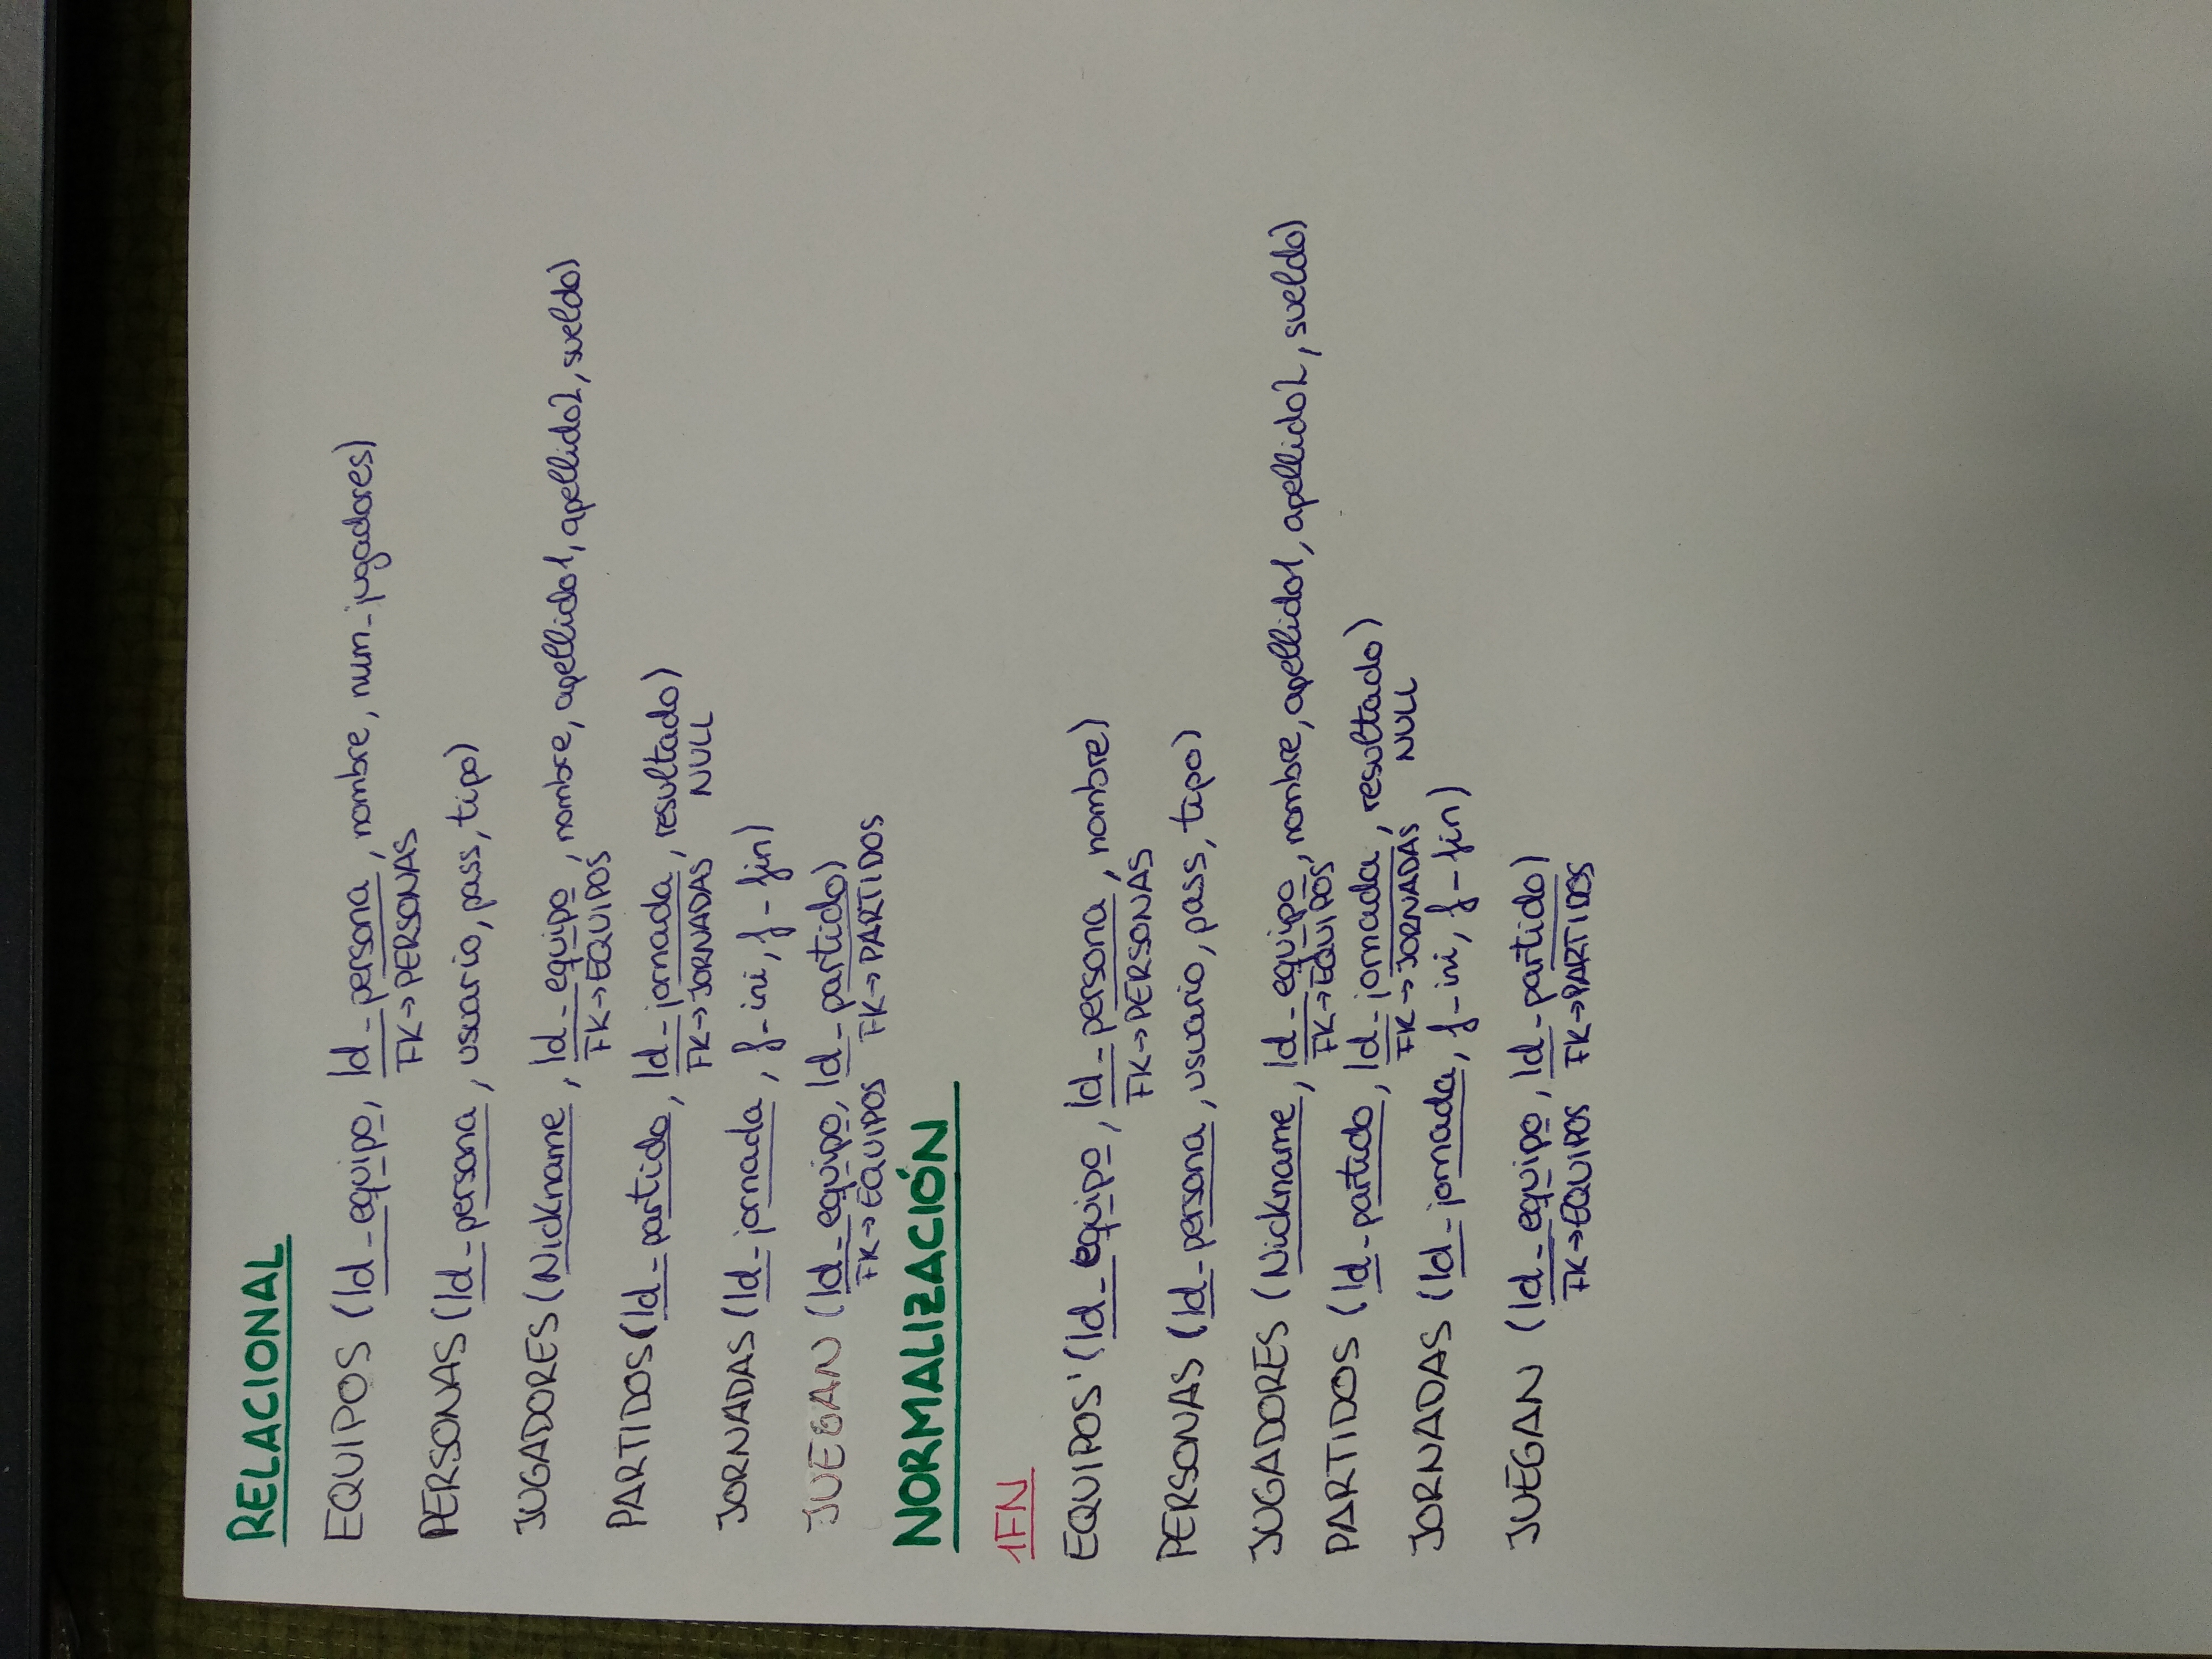 RELACIONAL
EQUIPOS (Id_equipo, Id_persona, nombre, num_jugadores)
FK→PERSONAS
PERSONAS (Id_persona, usuario, pass, tipo)
JUGADORES (Nickname, Id_equipo, nombre, apellido1, apellido2, sueldo)
FK→EQUIPOS
PARTIDOS (Id_partido, Id_jornada, resultado)
FK→JORNADAS NULL
JORNADAS (Id_jornada, f_ini, f_fin)
JUEGAN (Id_equipo, Id_partido)
FK→EQUIPOS FK→PARTIDOS
NORMALIZACIÓN
1FN
EQUIPOS' (Id_equipo, Id_persona, nombre)
FK→PERSONAS
PERSONAS (Id_persona, usuario, pass, tipo)
JUGADORES (Nickname, Id_equipo, nombre, apellido1, apellido2, sueldo)
FK→EQUIPOS
PARTIDOS (Id_partido, Id_jornada, resultado)
FK→JORNADAS NULL
JORNADAS (Id_jornada, f_ini, f_fin)
JUEGAN (Id_equipo, Id_partido)
FK→EQUIPOS FK→PARTIDOS